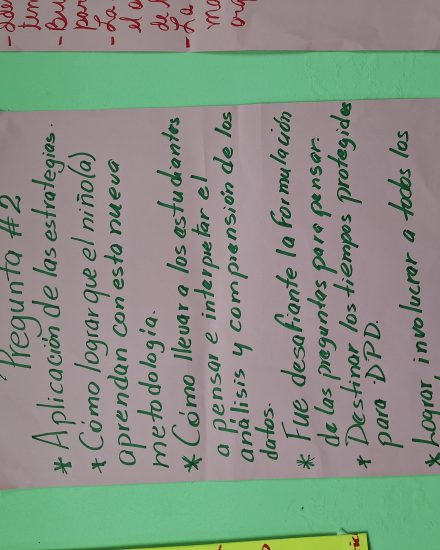 Pregunta #2
* Aplicación de las estrategias.
* Cómo lograr que el niño(a)
aprendan con esta nueva
metodología.
* Cómo llevar a los estudiantes
a pensar e interpretar el
análisis y comprensión de los
datos.
* Fue desafiante la formulación
de las preguntas para pensar.
* Destinar los tiempos protegidos
para DPD.
* Lograr involucrar a todos los
- Bu
- La
de
- La